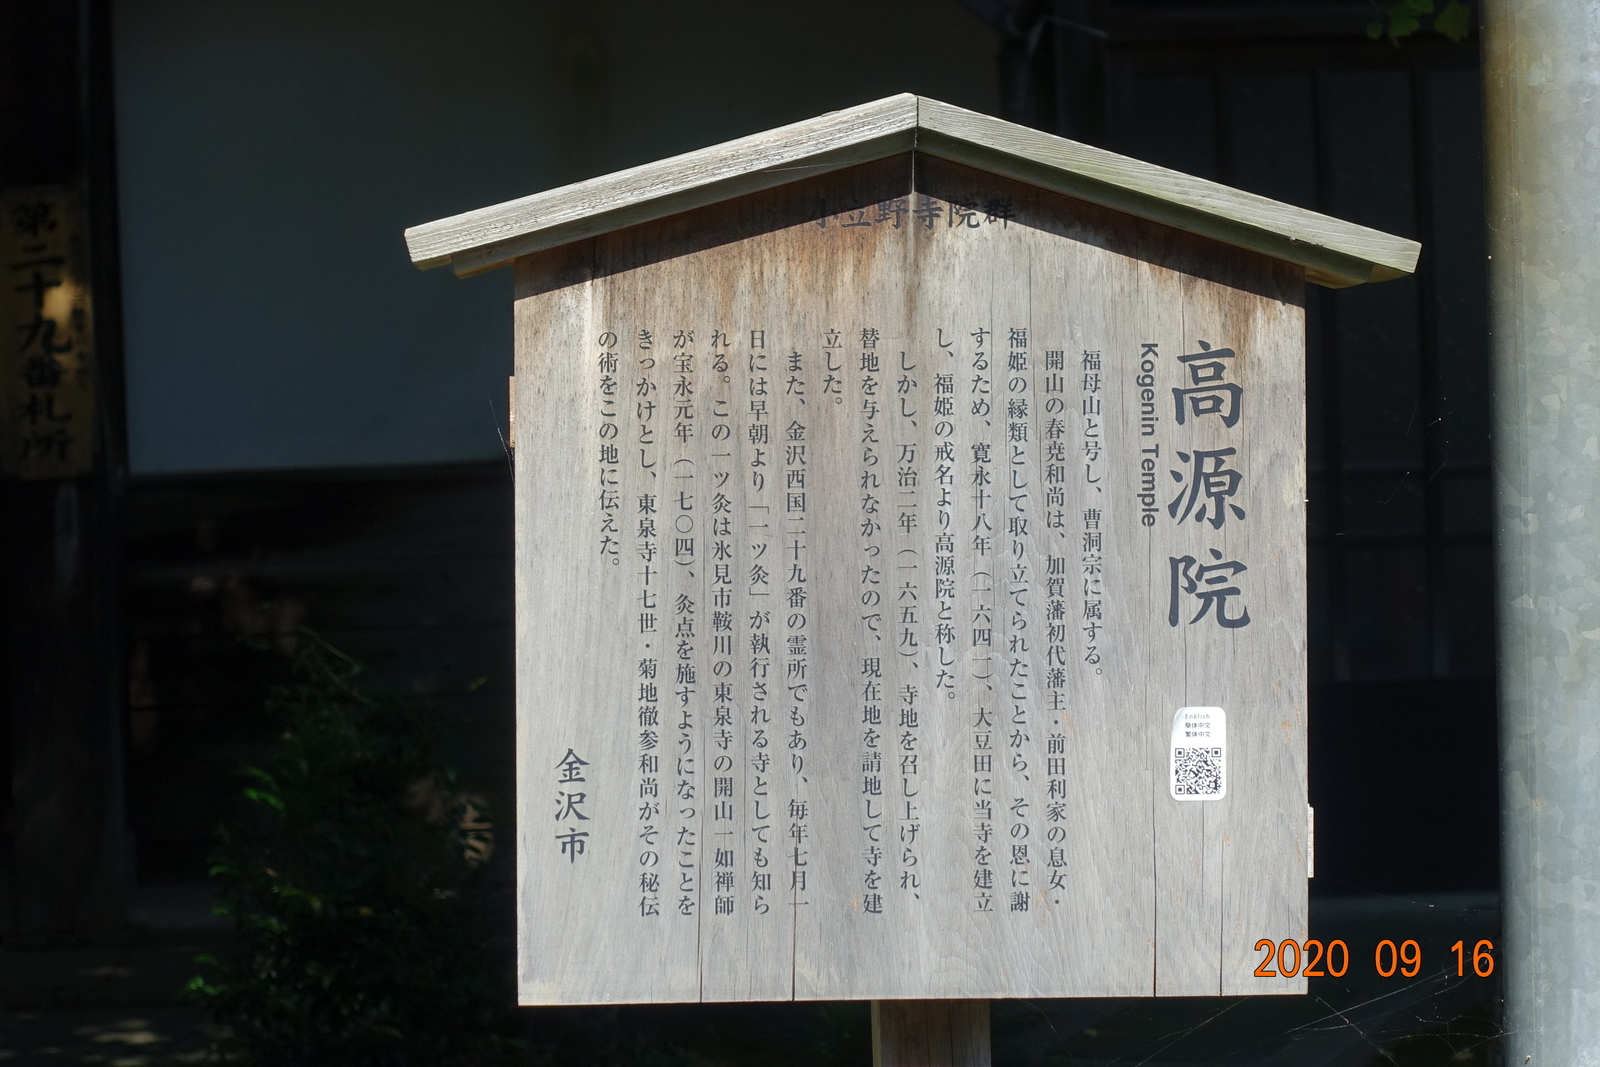 小立野寺院群
高源院
Kogenin Temple
福母山と号し、曹洞宗に属する。
開山の春尭和尚は、加賀藩初代藩主・前田利家の息女・
福姫の縁類として取り立てられたことから、その恩に謝
するため、寛永十八年（一六四一）、大豆田に当寺を建立
し、福姫の戒名より高源院と称した。
しかし、万治二年（一六五九）、寺地を召し上げられ、
替地を与えられなかったので、現在地を請地して寺を建
立した。
また、金沢西国二十九番の霊所でもあり、毎年七月一
日には早朝より「一ツ灸」が執行される寺としても知ら
れる。この一ツ灸は氷見市鞍川の東泉寺の開山一如禅師
が宝永元年（一七〇四）、灸点を施すようになったことを
きっかけとし、東泉寺十七世・菊地徹参和尚がその秘伝
の術をこの地に伝えた。
金沢市
English
簡体中文
繁体中文
第二十九番札所
2020 09 16